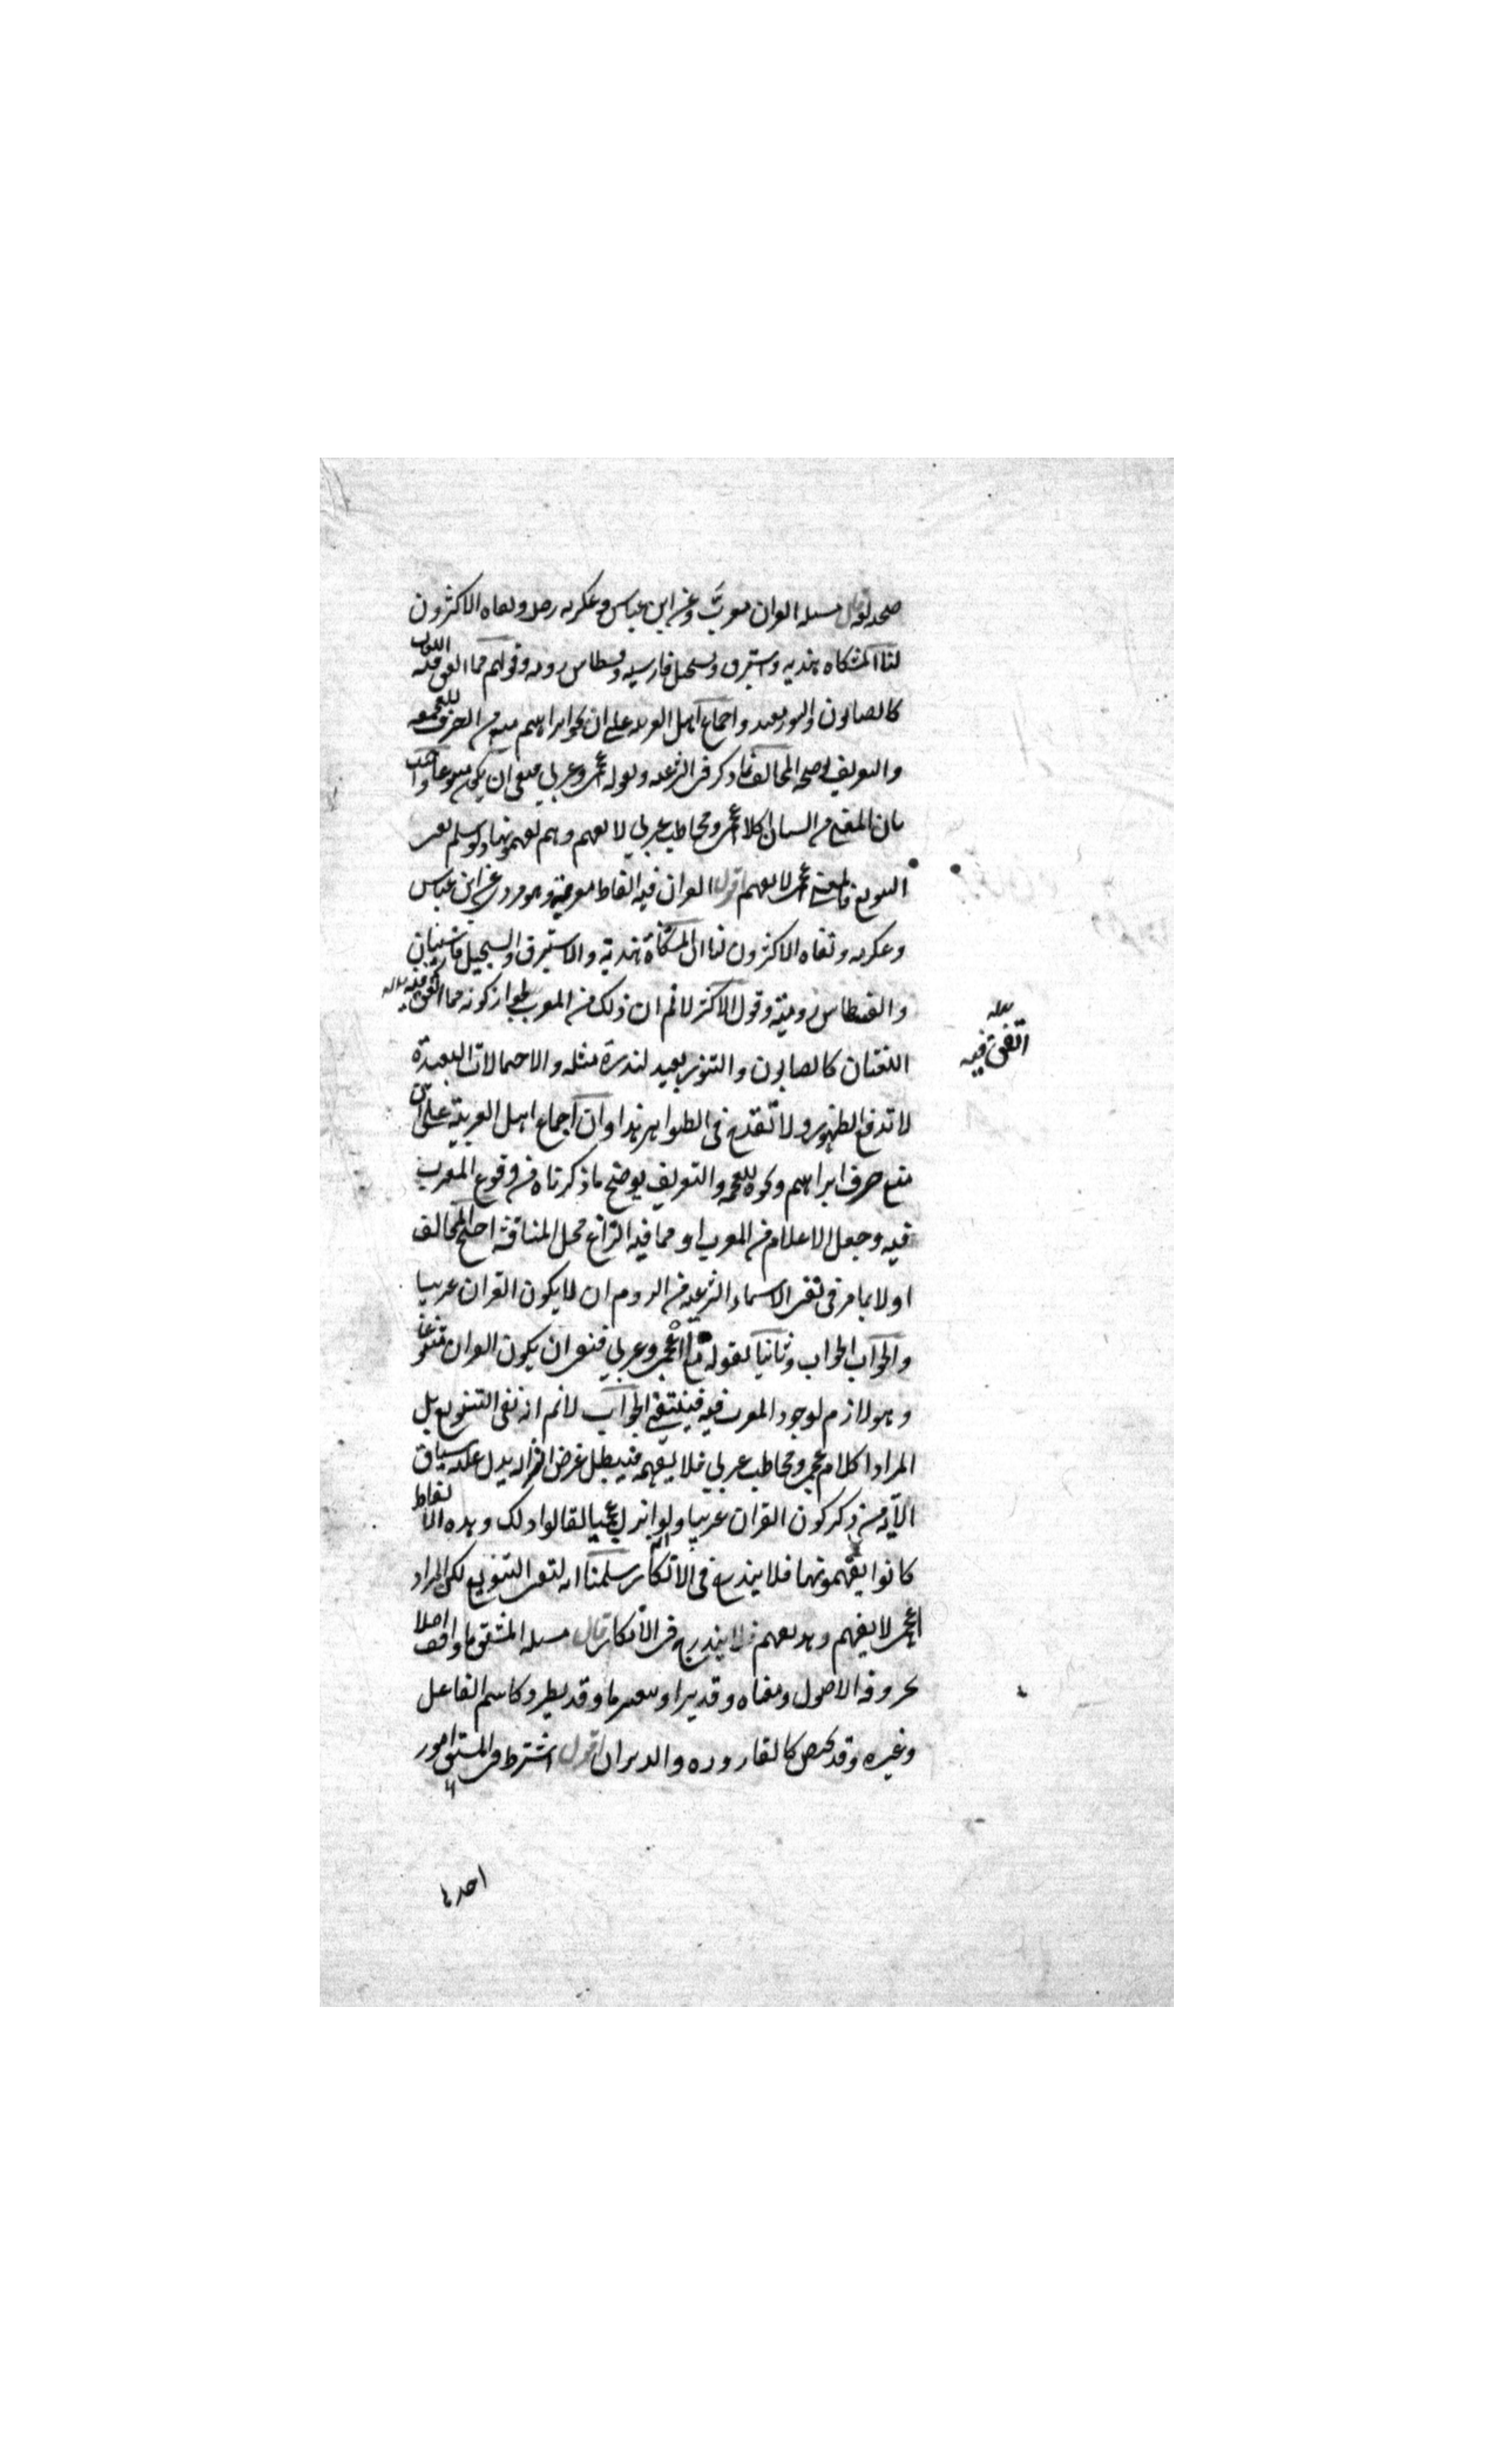 صحه لغه قال مسله القران معرب وعن ابن عباس وعكرمه رضى ونفاه الاكثرون
لنا المشكاه هنديه واستبرق وسجيل فارسيه وقسطاس روميه وقولهم مما اتفق فيه اللغتان
كالصابون والتنور بعيد واجماع اهل العربيه على ان نحو ابراهيم منع من الصرف للعجمه
والتعريف يوضحه المخالف بما ذكر فى الشرعيه وبقوله اعجمى وعربى فنفى ان يكون متنوعا واجيب
بان المعنى من السياق اكلام اعجمى ومخاطب عربى لا يفهم وهم يفهمونها ولو سلم نفى
التنويع فالمعنى اعجمى لا يفهم اقول القران فيه الفاظ معربة وهو مروى عن ابن عباس
وعكرمه ونفاه الاكثرون لنا ان المشكاة هندية والاستبرق والسجيل فارسيتان
والقسطاس رومية وقول الاكثر لانم ان ذلك من المعرب لجواز كونه مما اتفق فيه
اللغتان كالصابون والتنور بعيد لندرة مثله والاحتمالات البعيدة
لا تدفع الظهور ولا تقدح فى الظواهر هذا وان اجماع اهل العربية على ان
منع صرف ابراهيم ونحوه للعجمه والتعريف يوضح ما ذكرناه من وقوع المعرب
فيه وجعل الاعلام من المعرب او مما فيه النزاع محل المناقشة احتج المخالف
اولا بما مر فى نفى الاسماء الشرعيه من لزوم ان لا يكون القران عربيا
والجواب الجواب وثانيا بقوله تع ااعجمى وعربى فنفى ان يكون القران متنوعا
وهو لازم لوجود المعرب فيه فينتفى الجواب لانم انه نفى التنويع بل
المراد اكلام اعجمى ومخاطب عربى فلا يفهمه فيبطل غرض انزاله يدل عليه سياق
الآية من ذكر كون القران عربيا ولو انزل اعجميا لقالوا ذلك وهذه الالفاظ
كانوا يفهمونها فلا يندرج فى الانكار سلمنا انه لنفى التنويع لكن المراد
اعجمى لا يفهم وهذه تفهم فلا يندرج فى الانكار قال مسله المشتق ما وافق اصلا
بحروفه الاصول ومعناه وقد يزاد بتغيير ما وقد يطرد كاسم الفاعل
وغيره وقد يختص كالقاروره والدبران اقول اشترط فى المشتق امور
احدها
اتفق فيه